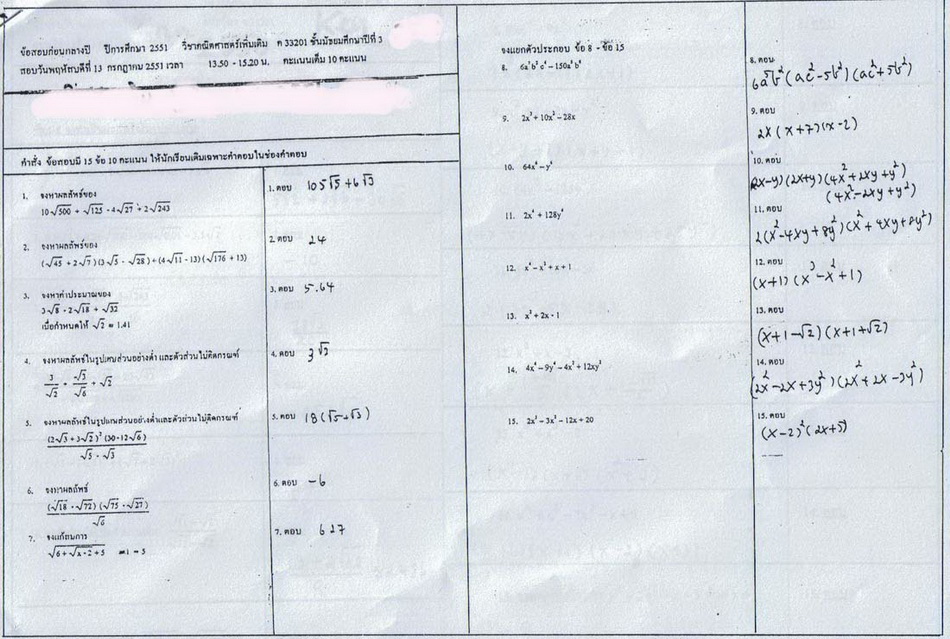 ข้อสอบก่อนกลางปี ปีการศึกษา 2551 วิชาคณิตศาสตร์เพิ่มเติม ค 33201 ชั้นมัธยมศึกษาปีที่ 3
สอบวันพฤหัสบดีที่ 13 กรกฎาคม 2551 เวลา 13.50 - 15.20 น. คะแนนเต็ม 10 คะแนน
คำสั่ง ข้อสอบมี 15 ข้อ 10 คะแนน ให้นักเรียนเติมเฉพาะคำตอบในช่องคำตอบ
1. จงหาผลลัพธ์ของ
10√500 + √125 - 4√27 + 2√243
2. จงหาผลลัพธ์ของ
(√45 + 2√7)(3√5 - √28) + (4√11 - 13)(√176 + 13)
3. จงหาค่าประมาณของ
3√8 - 2√18 + √32
เมื่อกำหนดให้ √2 ≈ 1.41
4. จงหาผลลัพธ์ในรูปเศษส่วนอย่างต่ำ และตัวส่วนไม่ติดกรณฑ์
3/√2 + √3/√6 + √2
5. จงหาผลลัพธ์ในรูปเศษส่วนอย่างต่ำและตัวส่วนไม่ติดกรณฑ์
(2√3 + 3√2)² (30 - 12√6)
√5 - √3
6. จงหาผลลัพธ์
(√18 - √72)(√75 - √27)
√6
7. จงแก้สมการ
1. ตอบ 105√5 + 6√3
2. ตอบ 24
3. ตอบ 5.64
4. ตอบ 3√2
5. ตอบ 18(√5+√3)
6. ตอบ -6
7. ตอบ 627
จงแยกตัวประกอบ ข้อ 8 - ข้อ 15
9. 2x³ + 10x² - 28x
10. 64x⁶ - y⁶
11. 2x⁴ + 128y⁴
12. x⁴ - x² + x + 1
13. x² + 2x - 1
14. 4x⁴ - 9y⁴ - 4x² + 12xy²
15. 2x³ - 3x² - 12x + 20
8. ตอบ
6a⁵b²(ac²-5b²)(ac²+5b²)
9. ตอบ
2x(x+7)(x-2)
10. ตอบ
(2x-y)(2x+y)(4x²+2xy+y²)
(4x²-2xy+y²)
11. ตอบ
2(x²-4xy+8y²)(x²+4xy+8y²)
12. ตอบ
(x+1)(x³-x²+1)
13. ตอบ
(x+1-√2)(x+1+√2)
14. ตอบ
(2x²-2x+3y²)(2x²+2x-3y²)
15. ตอบ
(x-2)²(2x+5)